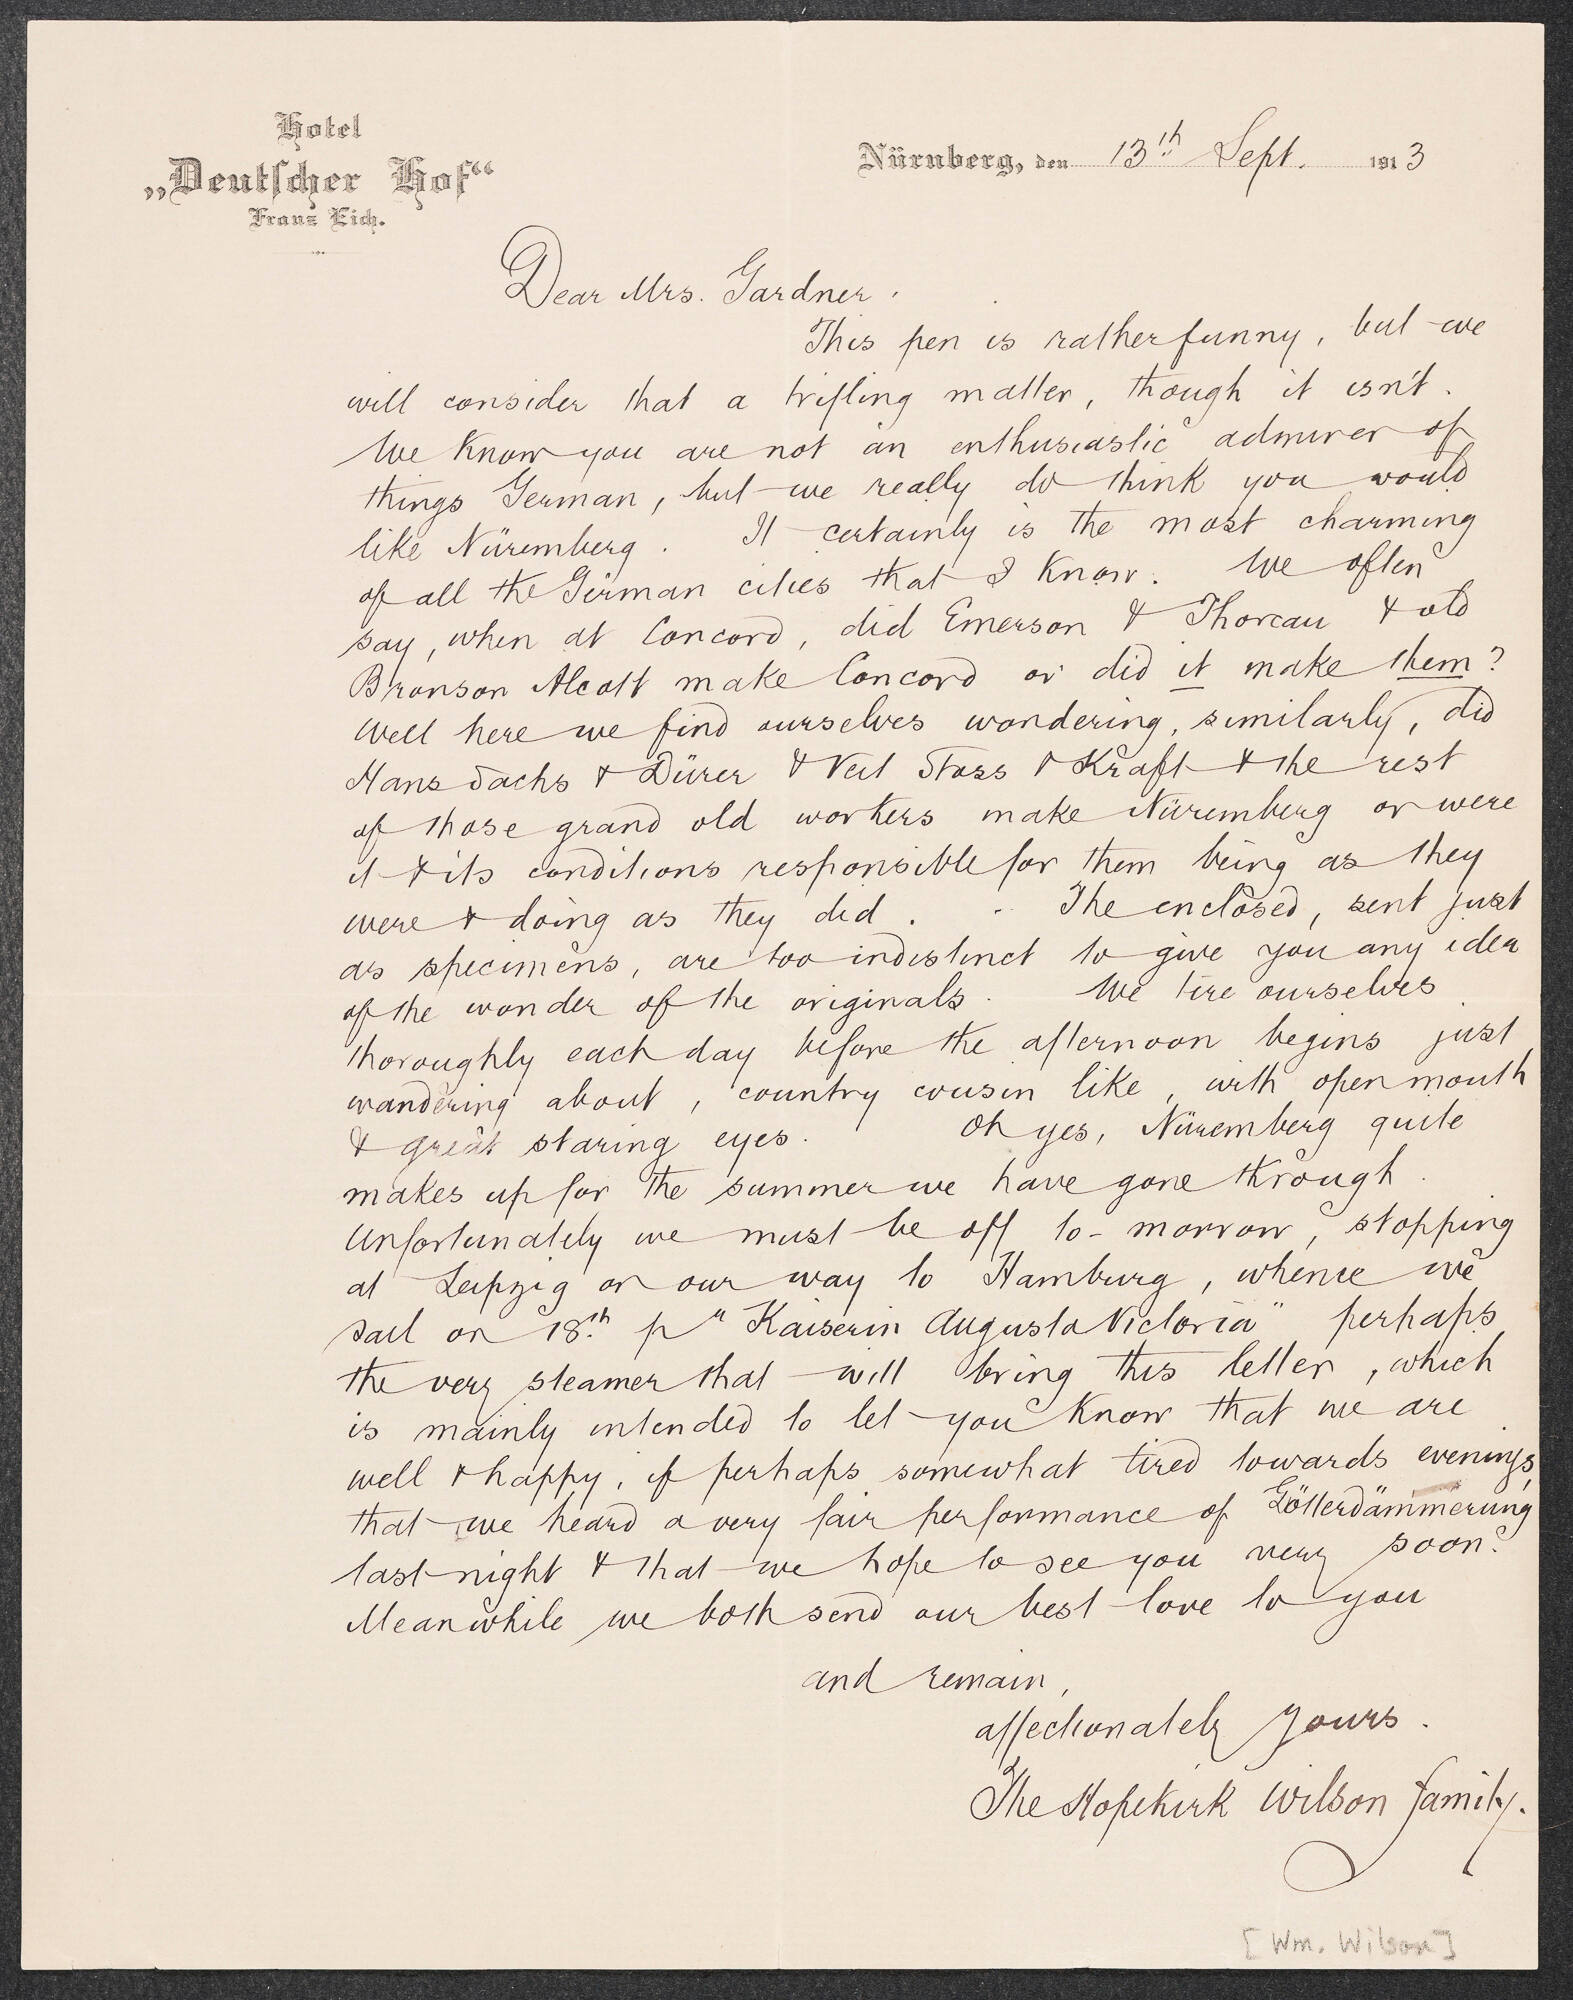 Hotel
„Deutscher Hof“
Franz Eich.
Nürnberg, den 13th Sept. 1913
Dear Mrs. Gardner.
This pen is rather funny, but we
will consider that a trifling matter, though it isn't.
We know you are not an enthusiastic admirer of
things German, but we really do think you would
like Nüremberg. It certainly is the most charming
of all the German cities that I know. We often
say, when at Concord, did Emerson & Thoreau & old
Bronson Alcott make Concord or did it make them?
Well here we find ourselves wondering, similarly, did
Hans Sachs & Dürer & Veit Stoss & Kraft & the rest
of those grand old workers make Nüremberg or were
it & its conditions responsible for them being as they
were & doing as they did. - The enclosed, sent just
as specimens, are too indistinct to give you any idea
of the wonder of the originals. We tire ourselves
thoroughly each day before the afternoon begins just
wandering about, country cousin like, with open mouth
& great staring eyes. Oh yes, Nüremberg quite
makes up for the summer we have gone through.
Unfortunately we must be off to-morrow, stopping
at Leipzig on our way to Hamburg, whence we
sail on 18th p "Kaiserin Augusta Victoria" perhaps
the very steamer that will bring this letter, which
is mainly intended to let you know that we are
well & happy, if perhaps somewhat tired towards evenings,
that we heard a very fair performance of Götterdämmerung
last night & that we hope to see you very soon.
Meanwhile we both send our best love to you
and remain,
affectionately yours.
The Hopekirk Wilson family.
[Wm. Wilson]